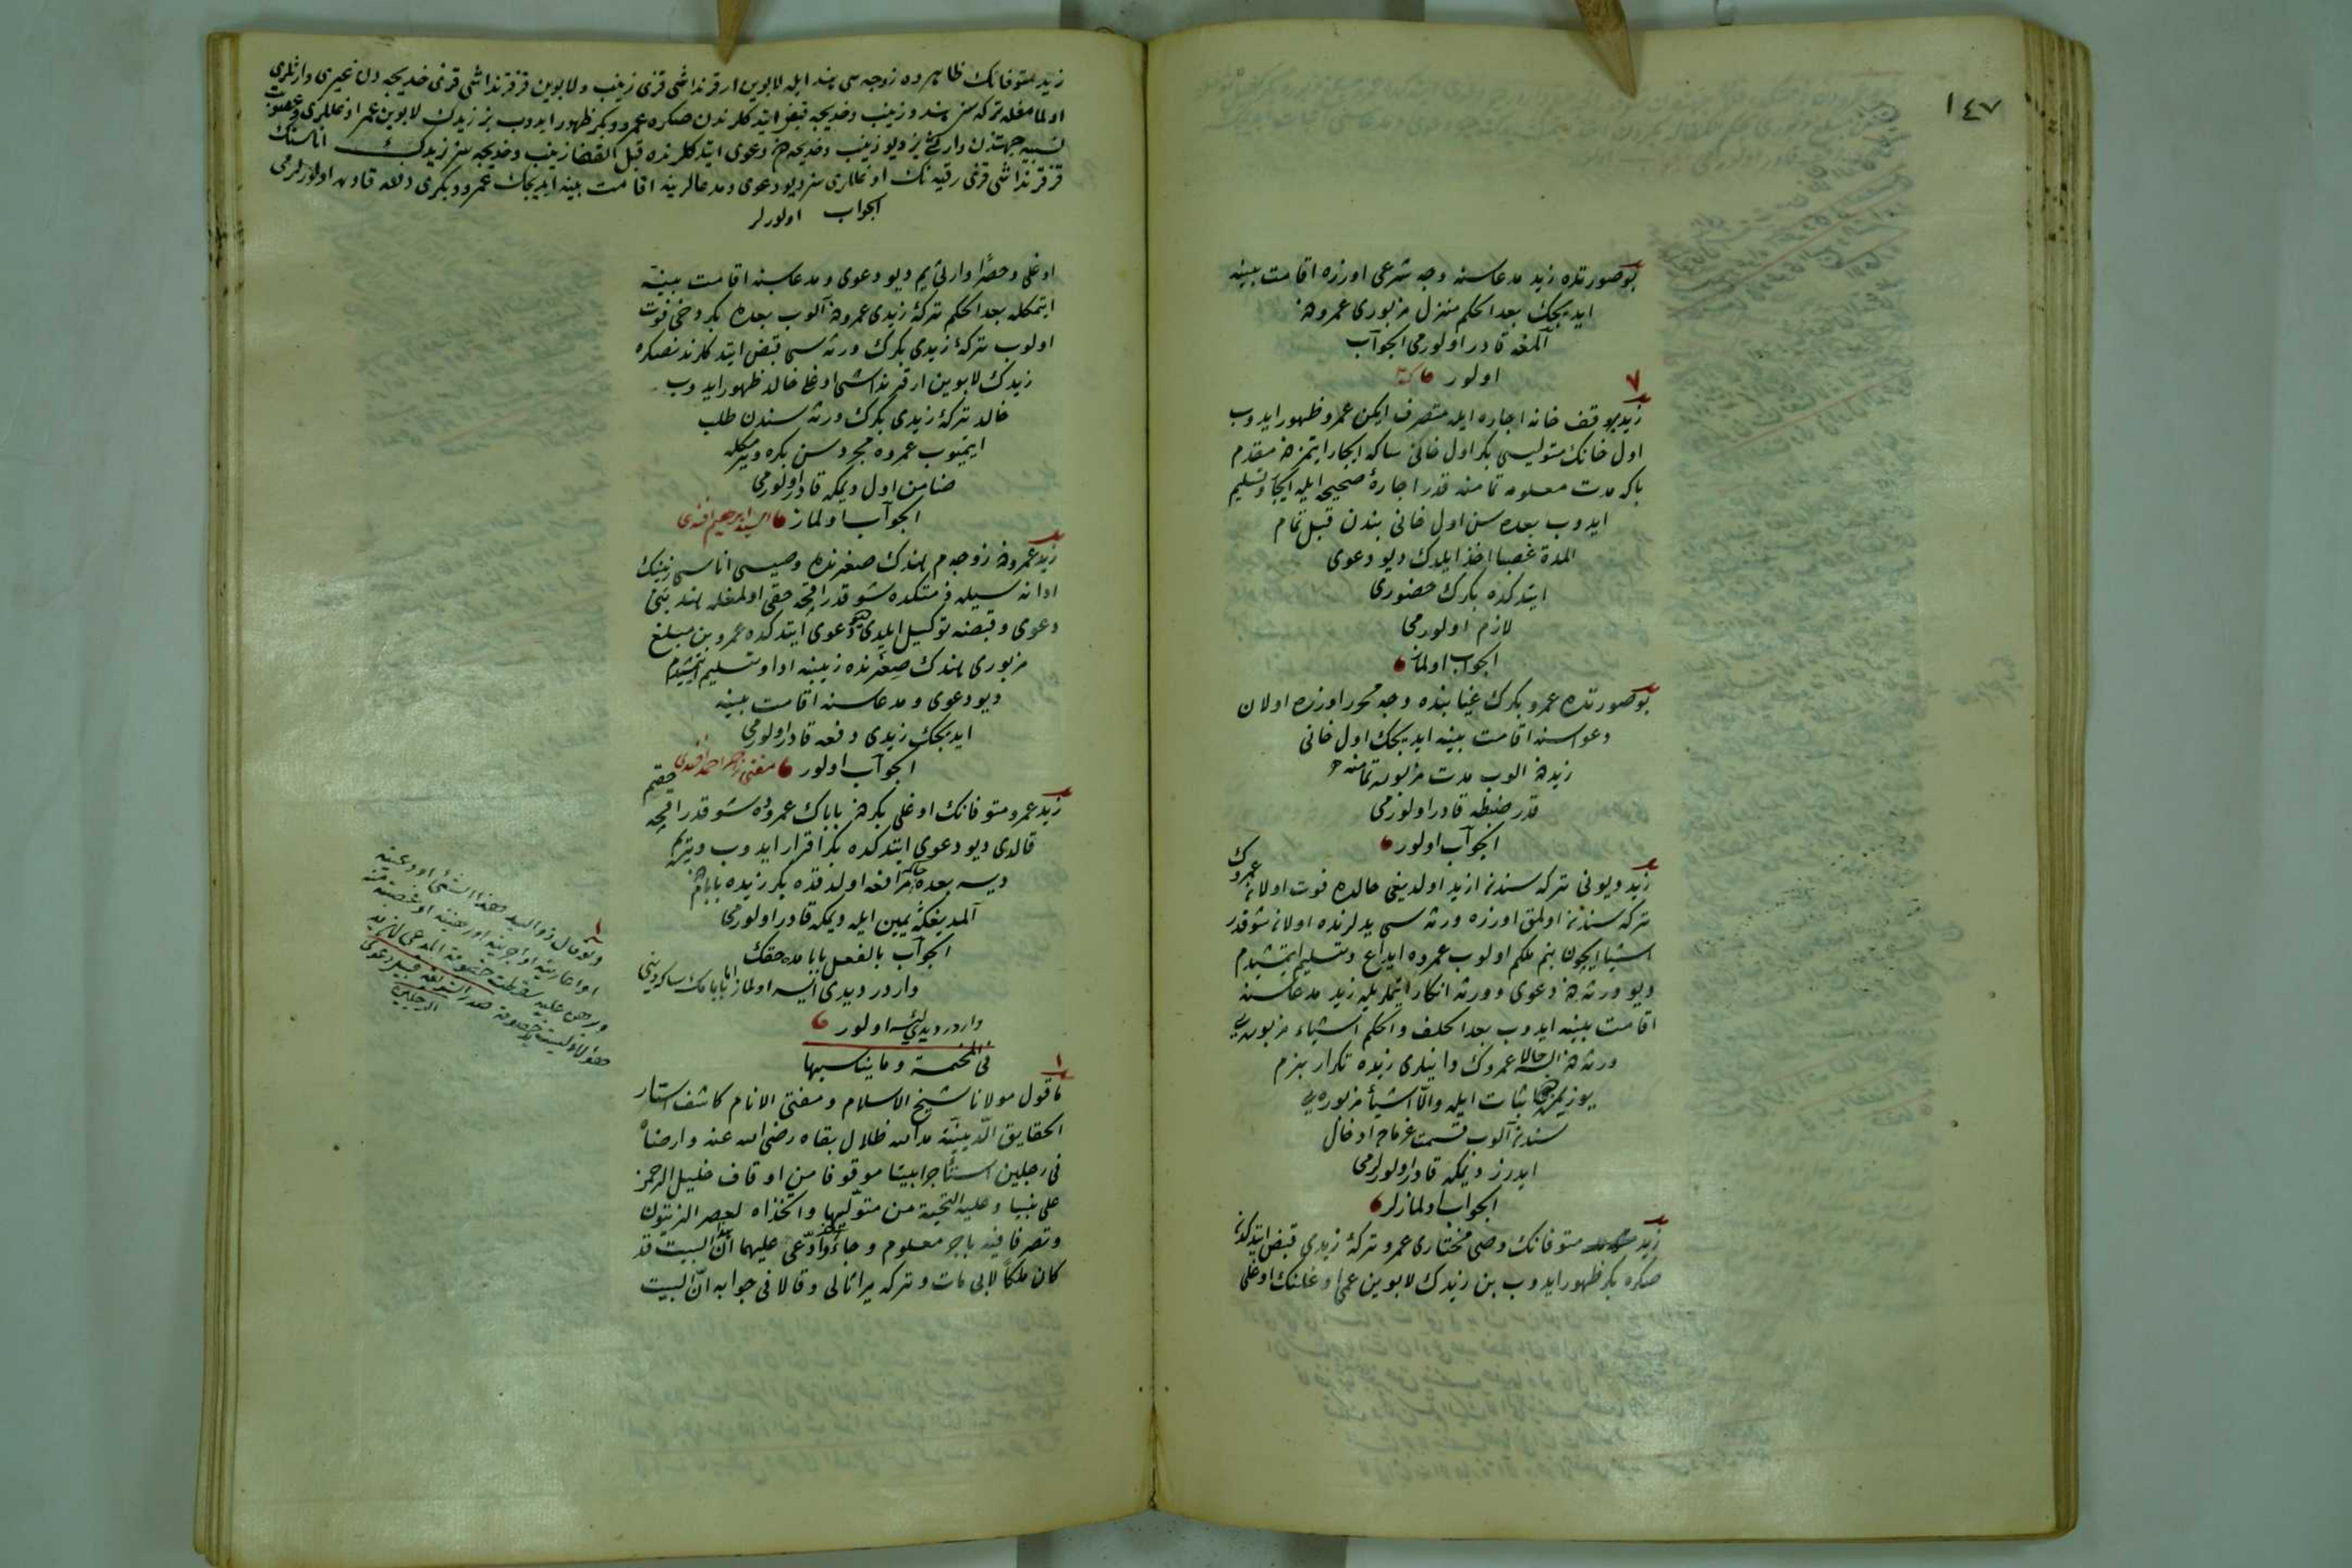 ١٤٧
بو صورتده زید مدعاسنه وجه شرعی اوزره اقامت بینه
ایدیجك بعد الحكم منزل مزبوری عمرودن
آلمغه قادر اولورمی الجواب
اولور
٧
زید بر وقف خانه اجاره ایله متصرف ایكن عمرو ظهور ایدوب
اول خانك متولیسی بكر اول خانی سكا ایجار ایتمزدن مقدم
بكا مدت معلومه تمامنه قدر اجارۀ صحیحه ایله ایجار و تسلیم
ایدوب بعده سن اول خانی بندن قبل تمام
المدة غصبا اخذ ایلدك دیو دعوی
ایتدكده بكرك حضوری
لازم اولورمی
الجواب اولماز
بو صورتده عمرو بكرك غیابنده وجه محرر اوزره اولان
دعواسنه اقامت بینه ایدیجك اول خانی
زیددن الوب مدت مزبوره تمامنه
قدر ضبطه قادر اولورمی
الجواب اولور
زید دیونی تركه سندن ازید اولدیغی حالده فوت اولان عمروك
تركه سندن اولمق اوزره ورثه سی یدلرنده اولان شو قدر
اشیا ایچون بنم ملكم اولوب عمروه ایداع و تسلیم ایتمشیدم
دیو ورثه دن دعوی و ورثه انكار ایتملریله زید مدعاسنه
اقامت بینه ایدوب بعد الحلف والحكم اشیاء مزبوره یی
ورثه دن السه حالا عمروك داینلری زیده تكرار بزم
یوزیمزه اثبات ایله والا اشیاء مزبوره یی
سندن آلوب قسمت غرمایه ادخال
ایدرز دیمكه قادر اولورلرمی
الجواب اولمازلر
زید متوفانك وصی مختاری عمرو تركۀ زیدی قبض ایتدكدن
صكره بكر ظهور ایدوب بن زیدك لابوین عمی اوغلنك اوغلی
زید متوفانك ظاهرده زوجه سی هند ایله لابوین ار قرنداشی قزی زینب و لابوین قز قرنداشی قزی خدیجه دن غیری وارثلری
اولمامغله تركه سن هند و زینب و خدیجه قبض ایتدكلرندن صكره عمرو و بكر ظهور ایدوب بز زیدك لابوین عمر اوغللری و عصوبت
نسبیه جهتندن وارثی یز دیو زینب و خدیجه دن دعوی ایتدكلرنده قبل القضا زینب و خدیجه سز زیدك اناسنك
قز قرنداشی قزی رقیه نك اوغللری سز دیو دعوی و مدعالرینه اقامت بینه ایدیجك عمرو و بكری دفعه قادره اولورلرمی
الجواب اولورلر
اوغلی و حصرا وارثی یم دیو دعوی و مدعاسنه اقامت بینه
ایتمكله بعد الحكم تركۀ زیدی عمرودن آلوب بعده بكر دخی فوت
اولوب تركۀ زیدی بكرك ورثه سی قبض ایتدكلرندنصكره
زیدك لابوین ار قرنداشی اوغلی خالد ظهور ایدوب
خالد تركۀ زیدی بكرك ورثه سندن طلب
ایتمیوب عمروه مجرد سن بكره ویرمكله
ضامن اول دیمكه قادر اولورمی
الجواب اولماز السید ابرهیم افندی
زید عمرودن زوجه م هندك صغرنده وصیسی اناسی زینبك
ادانه سیله ذمتكده شو قدر اقچه حقی اولمغله هند بنی
دعوی و قبضنه توكیل ایلدی دیو دعوی ایتدكده عمرو بن مبلغ
مزبوری هندك صغرنده زینبه ادا و تسلیم ایتمشیدم
دیو دعوی و مدعاسنه اقامت بینه
ایدیجك زیدی دفعه قادر اولورمی
الجواب اولور مفتی زاده احمد افندی
زید عمرو متوفانك اوغلی بكردن باباك عمروده شو قدر اقچه حقم
قالدی دیو دعوی ایتدكده بكر اقرار ایدوب ویریم
دیسه بعده حاكمه مرافعه اولدقده بكر زیده بابامدن
آلمدیغكه یمین ایله دیمكه قادر اولورمی
الجواب بالفعل بابامده حقك
واردر دیدی ایسه اولماز اما بابامك سكا دینی
واردر دیدی ایسه اولور
فی المخمسة و ما یناسبها
١
ما قول مولانا شیخ الاسلام و مفتی الانام كاشف استار
الحقایق الدینیة مد الله ظلال بقاه رضی الله عنه و ارضاه
فی رجلین استأجرا بیتا موقوفا من اوقاف خلیل الرحمن
علی نبینا و علیه التحیة من متولیها و اتخذاه لعصر الزیتون
و تصرفا فیه باجر معلوم و جاء و ادعی علیهما ان هذا البیت قد
كان ملكا لابی مات و تركه میراثا لی و قالا فی جوابه ان البیت
١
ولو قال ذو الید هذا الشئ اودعنیه
او اعارنیه او اجرنیه او رهننیه او غصبته منه
و برهن علیه سقطت خصومة المدعی